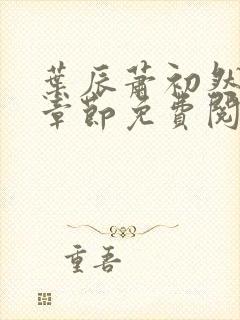 葉辰蕭初然
章節免費閱
重吾